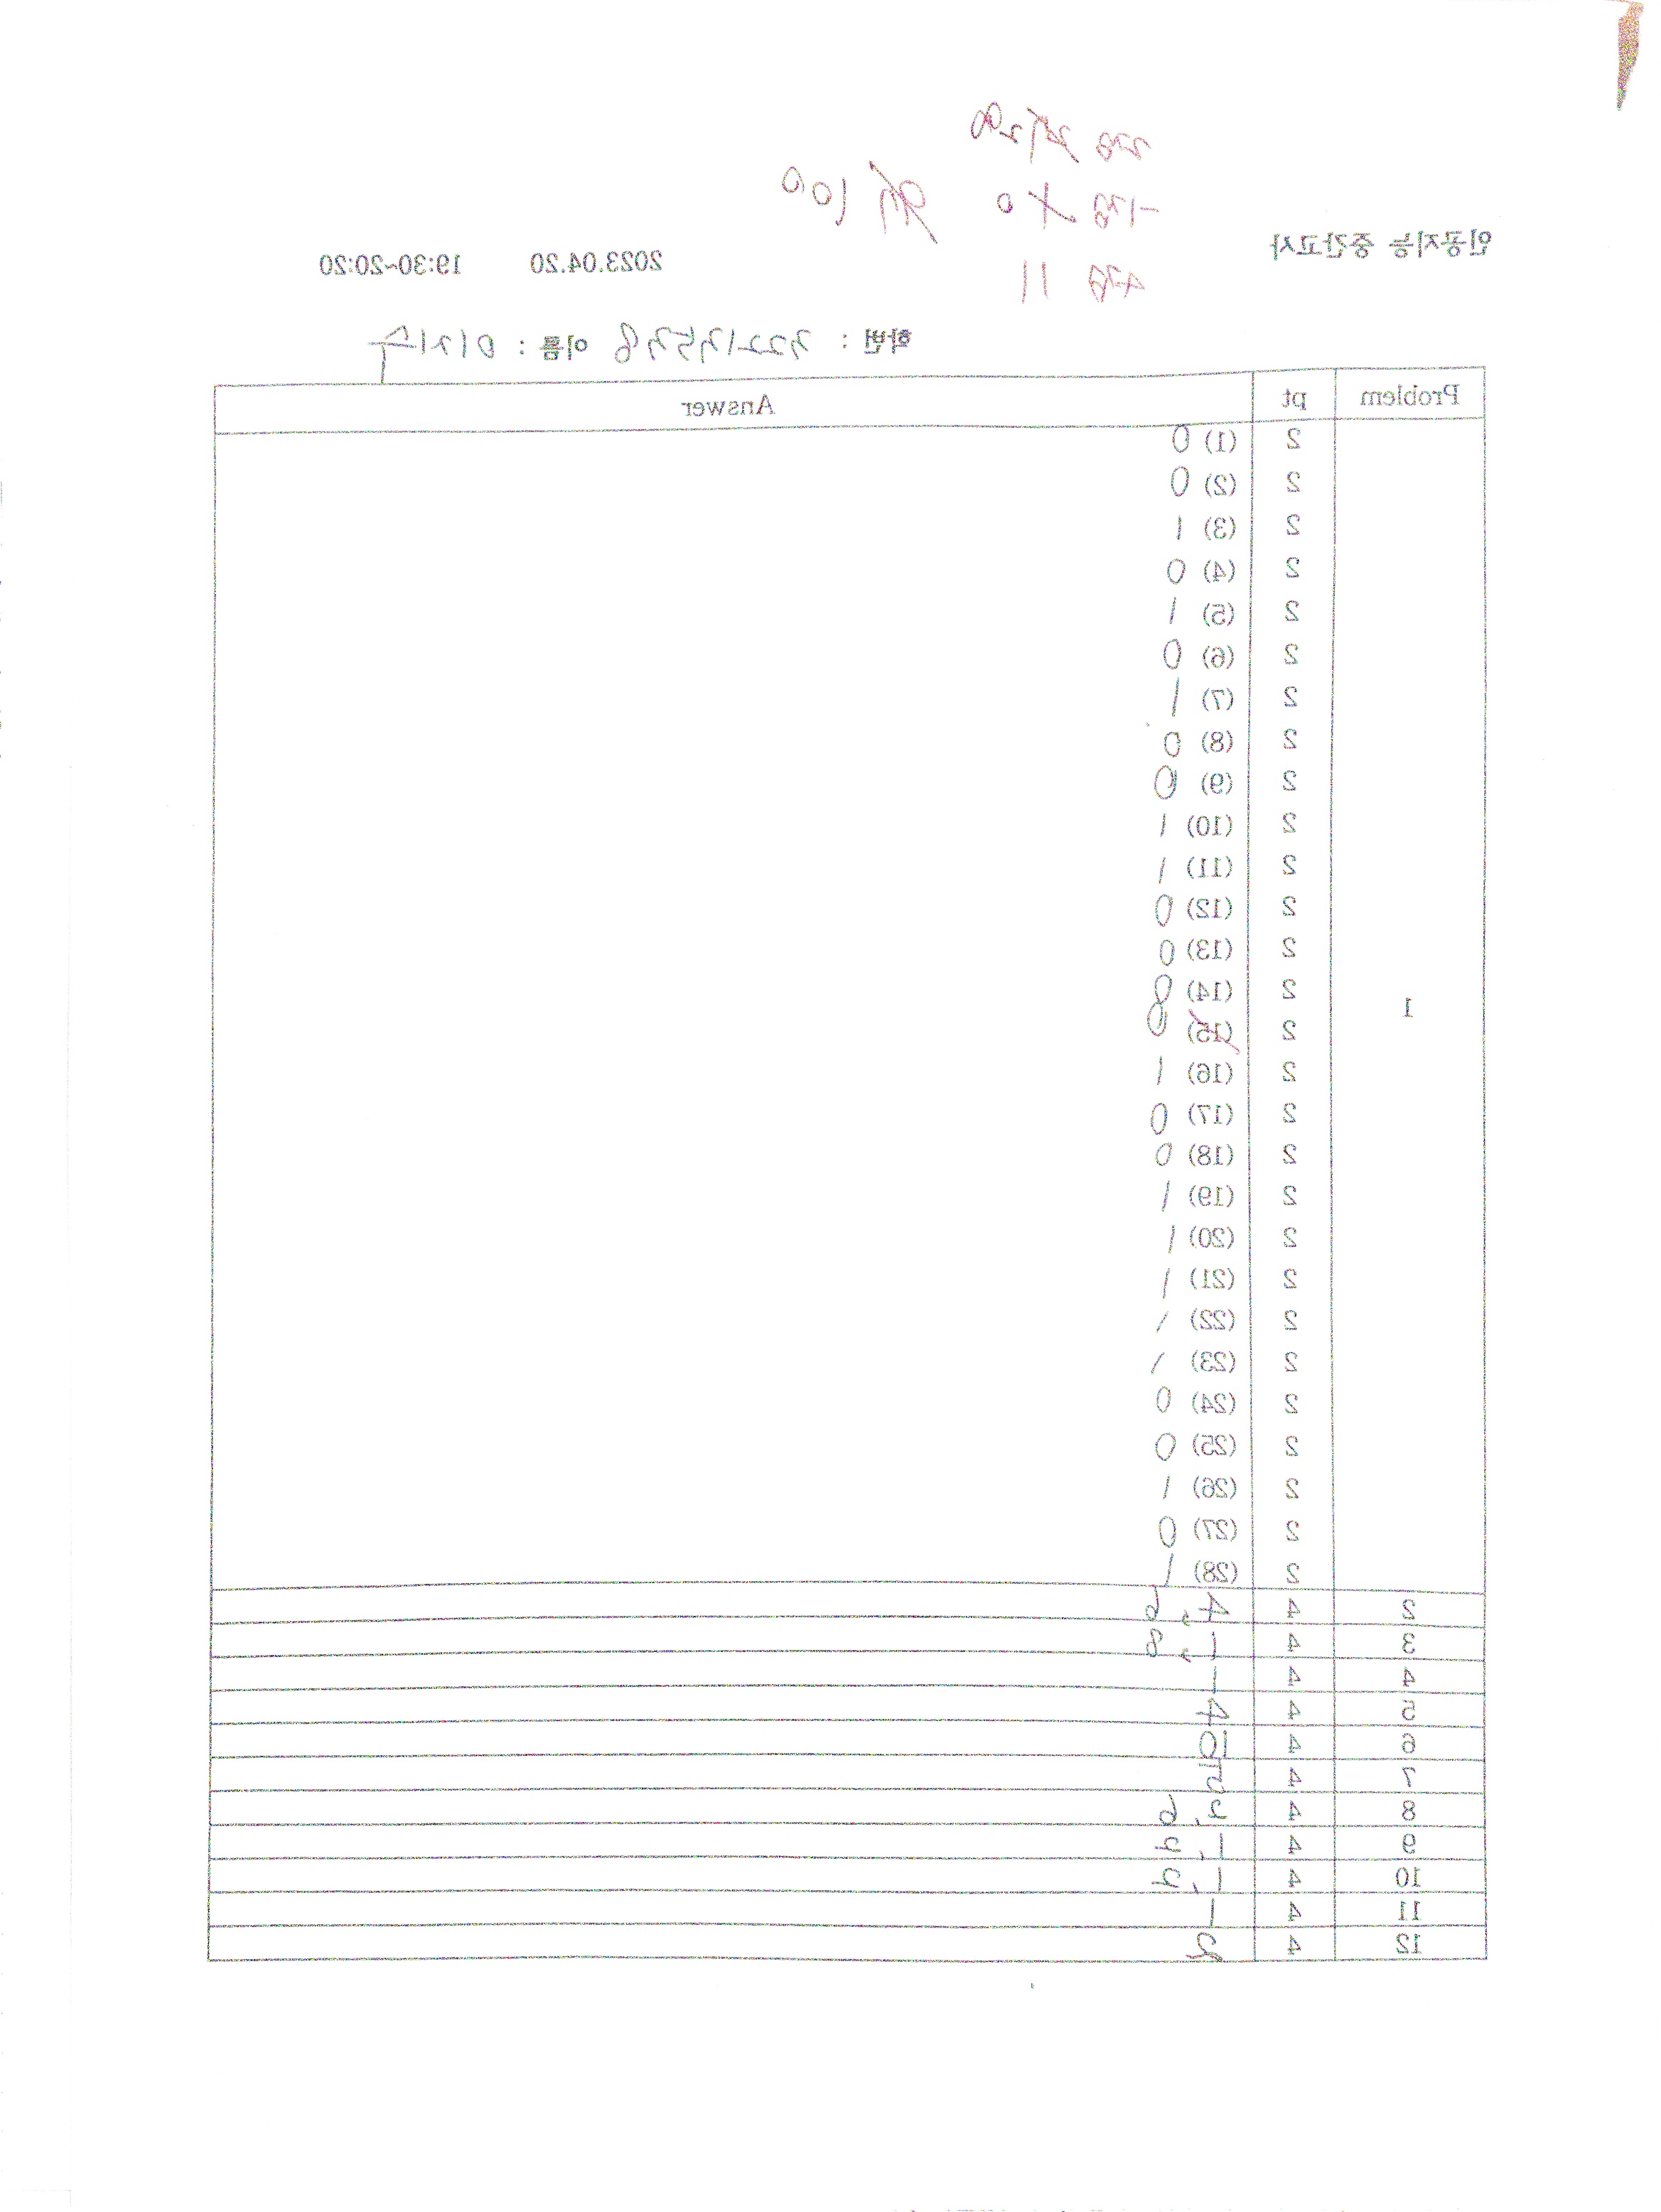 2점 28
-1점 0 100
인공지능 중간고사
4점 11
2023.04.20 19:30~20:20
학번 : 이름 : 이지수
Problem pt Answer
2 (1) 0
2 (2) 0
2 (3) 1
2 (4) 0
2 (5) 1
2 (6) 0
2 (7) 1
2 (8) 0
2 (9) 0
2 (10) 1
2 (11) 1
2 (12) 0
2 (13) 0
2 (14) 0
1 2 (15) 0
2 (16) 1
2 (17) 0
2 (18) 0
2 (19) 1
2 (20) 1
2 (21) 1
2 (22) 1
2 (23) 1
2 (24) 0
2 (25) 0
2 (26) 1
2 (27) 0
2 (28) 1
2 4 4, 6
3 4 1, 8
4 4 1
5 4 4
6 4 10
7 4 5
8 4 2, 6
9 4 1, 2
10 4 1, 2
11 4 1
12 4 2